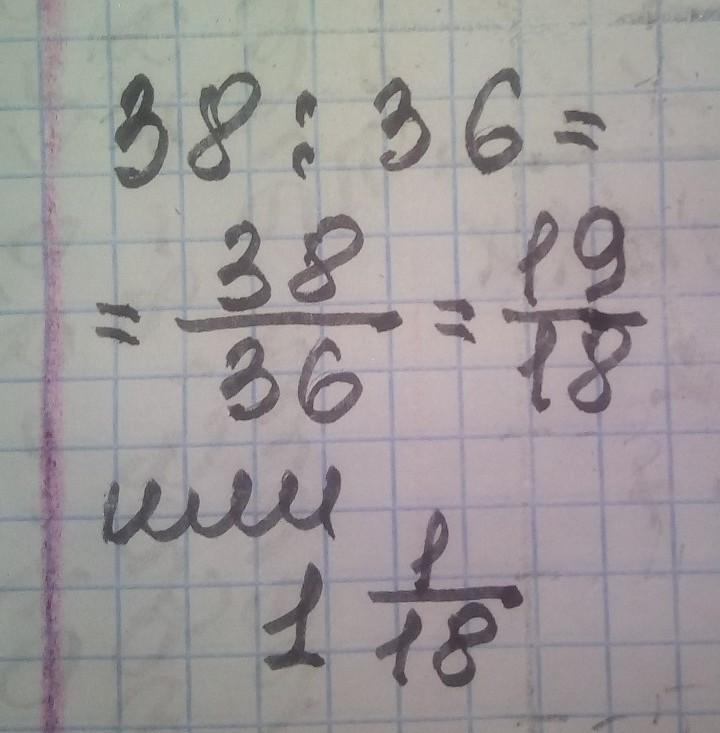 38 : 36 =
= 38/36 = 19/18
или
1 1/18